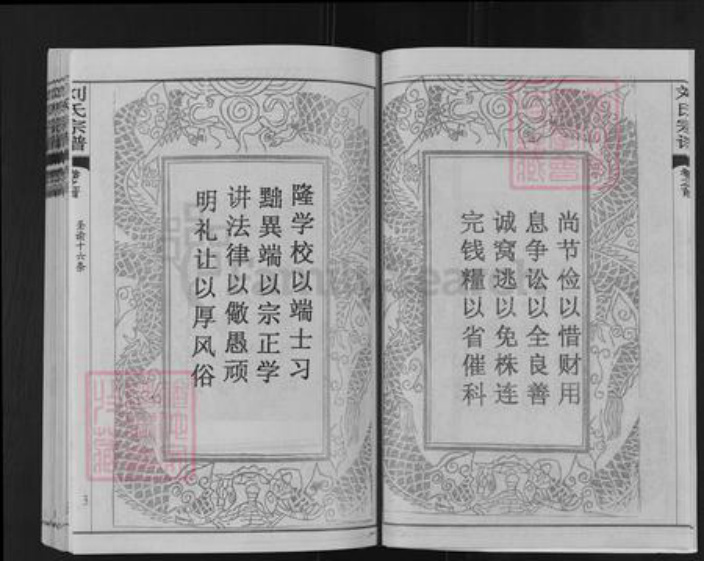 尚节俭以惜财用
息争讼以全良善
诚窝逃以免株连
完钱糧以省催科
隆学校以端士习
黜異端以宗正学
讲法律以儆愚顽
明礼让以厚风俗
刘氏宗谱
卷之首
圣谕十六条
3